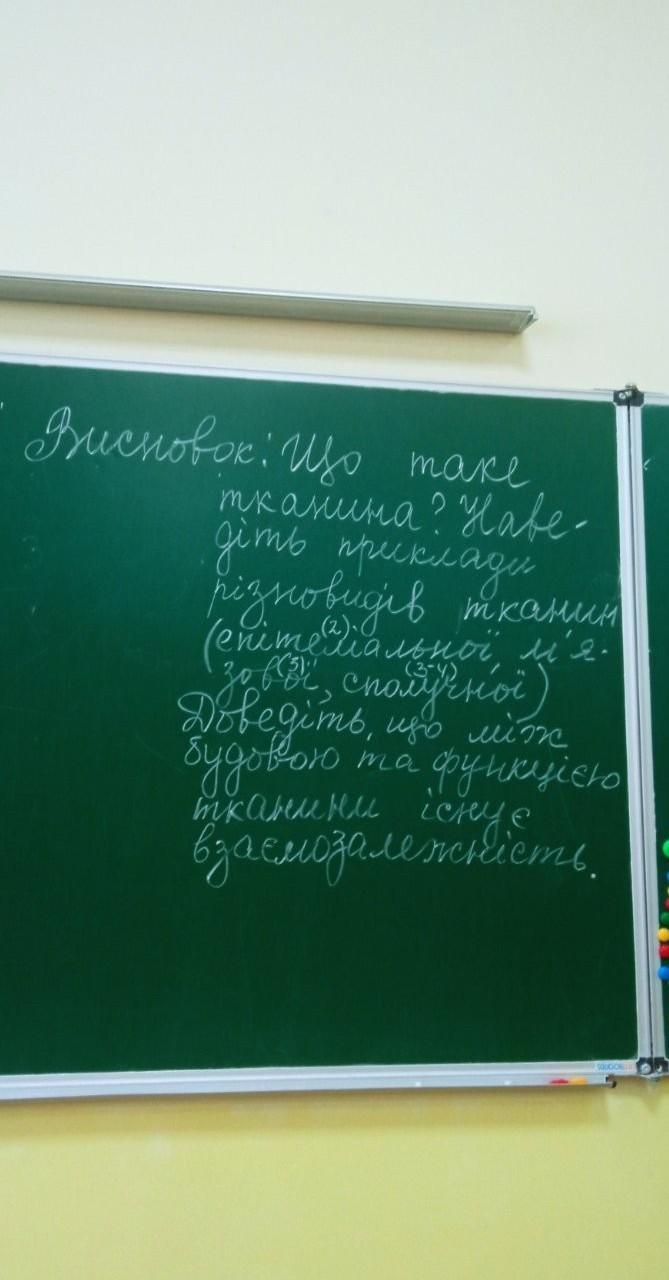 Висновок: Що таке
тканина? Наве-
діть приклади
різновидів тканин
(епітеліальної(2), м'я-
зової(3), сполучної(3-4))
Доведіть, що між
будовою та функцією
тканини існує
взаємозалежність.